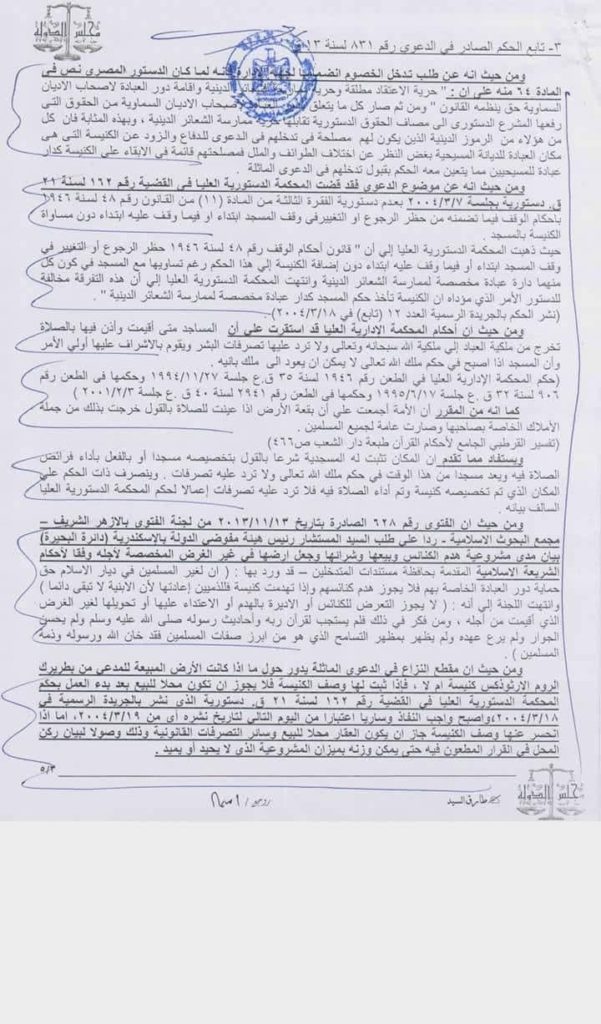 مجلس الدولة
٣- تابع الحكم الصادر في الدعوى رقم ٨٣١ لسنة ١٣
ومن حيث انه عن طلب تدخل الخصوم انضماميا لجهة الإدارة فإنه لما كان الدستور المصرى نص فى
المادة ٦٤ منه على ان : " حرية الاعتقاد مطلقة وحرية الشعائر الدينية وإقامة دور العبادة لأصحاب الاديان
السماوية حق ينظمه القانون " ومن ثم صار كل ما يتعلق أصحاب الاديان السماوية من الحقوق التى
رفعها المشرع الدستورى الى مصاف الحقوق الدستورية تقابلها حرية ممارسة الشعائر الدينية ، وبهذه المثابة فان كل
من هؤلاء من الرموز الدينية الذين يكون لهم مصلحة في تدخلهم فى الدعوى للدفاع والزود عن الكنيسة التى هى
مكان العبادة للديانة المسيحية بغض النظر عن اختلاف الطوائف والملل فمصلحتهم قائمة في الابقاء على الكنيسة كدار
عبادة للمسيحيين مما يتعين معه الحكم بقبول تدخلهم فى الدعوى الماثلة .
ومن حيث انه عن موضوع الدعوى فقد قضت المحكمة الدستورية العليا في القضية رقم ١٦٢ لسنة ٢١
ق. دستورية بجلسة ٢٠٠٤/٣/٧ بعدم دستورية الفقرة الثالثة من المادة (١١) من القانون رقم ٤٨ لسنة ١٩٤٦
بأحكام الوقف فيما تضمنه من حظر الرجوع او التغيير فى وقف المسجد ابتداء او فيما وقف عليه ابتداء دون مساواة
الكنيسة بالمسجد .
حيث ذهبت المحكمة الدستورية العليا إلي أن " قانون أحكام الوقف رقم ٤٨ لسنة ١٩٤٦ حظر الرجوع أو التغيير في
وقف المسجد ابتداء أو فيما وقف عليه ابتداء دون إضافة الكنيسة إلي هذا الحكم رغم تساويها مع المسجد في كون كل
منهما دارة عبادة مخصصة لممارسة الشعائر الدينية وانتهت المحكمة الدستورية العليا إلي أن هذه التفرقة مخالفة
للدستور الأمر الذي مؤداه ان الكنيسة تأخذ حكم المسجد كدار عبادة مخصصة لممارسة الشعائر الدينية " .
(نشر الحكم بالجريدة الرسمية العدد ١٢ (تابع) في ٢٠٠٤/٣/١٨).
ومن حيث ان أحكام المحكمة الإدارية العليا قد استقرت علي ان المساجد متى أقيمت وأذن فيها بالصلاة
تخرج من ملكية العباد إلي ملكية الله سبحانه وتعالى ولا ترد عليها تصرفات البشر ويقوم بالاشراف عليها أولي الأمر
وأن المسجد اذا اصبح في حكم ملك الله تعالى لا يمكن ان يعود الى ملك بانيه .
(حكم المحكمة الإدارية العليا في الطعن رقم ١٩٤٦ لسنة ٣٥ ق.ع جلسة ١٩٩٤/١١/٢٧ وحكمها في الطعن رقم
٩٠٦ لسنة ٣٢ ق.ع جلسة ١٩٩٥/٦/١٧ وحكمها في الطعن رقم ٢٩٤١ لسنة ٤٠ ق.ع جلسة ٢٠٠١/٢/٣)
كما انه من المقرر أن الأمة أجمعت علي أن بقعة الأرض اذا عينت للصلاة بالقول خرجت بذلك من جملة
الأملاك الخاصة بصاحبها وصارت عامة لجميع المسلمين .
(تفسير القرطبي الجامع لأحكام القرآن طبعة دار الشعب ص٤٦٦)
ويستفاد مما تقدم ان المكان تثبت له المسجدية شرعا بالقول بتخصيصه مسجدا أو بالفعل بأداء فرائض
الصلاة فيه ويعد مسجدا من هذا الوقت في حكم ملك الله تعالى ولا ترد عليه تصرفات . وينصرف ذات الحكم علي
المكان الذي تم تخصيصه كنيسة وتم أداء الصلاة فيه فلا ترد عليه تصرفات إعمالا لحكم المحكمة الدستورية العليا
السالف بيانه .
ومن حيث ان الفتوى رقم ٦٢٨ الصادرة بتاريخ ٢٠١٣/١١/١٣ من لجنة الفتوى بالأزهر الشريف –
مجمع البحوث الاسلامية - ردا علي طلب السيد المستشار رئيس هيئة مفوضي الدولة بالإسكندرية (دائرة البحيرة)
بيان مدى مشروعية هدم الكنائس وبيعها وشرائها وجعل ارضها في غير الغرض المخصصة لأجله وفقا لأحكام
الشريعة الاسلامية المقدمة بحافظة مستندات المتدخلين – قد ورد بها : ( ان لغير المسلمين في ديار الاسلام حق
حماية دور العبادة الخاصة بهم فلا يجوز هدم كنائسهم وإذا تهدمت كنيسة فللذميين إعادتها لأن الابنية لا تبقى دائما )
وانتهت اللجنة إلي أنه : ( لا يجوز التعرض للكنائس أو الاديرة بالهدم أو الاعتداء عليها أو تحويلها لغير الغرض
الذي أقيمت من أجله ، ومن فكر في ذلك فلم يستجب لقرآن ربه وأحاديث رسوله صلى الله عليه وسلم ولم يحسن
الجوار ولم يرع عهده ولم يظهر بمظهر التسامح الذي هو من ابرز صفات المسلمين فقد خان الله ورسوله وذمة
المسلمين ) .
ومن حيث ان مقطع النزاع في الدعوى الماثلة يدور حول ما اذا كانت الأرض المبيعة للمدعى من بطريرك
الروم الارثوذكس كنيسة ام لا ، فإذا ثبت لها وصف الكنيسة فلا يجوز ان تكون محلا للبيع بعد بدء العمل بحكم
المحكمة الدستورية العليا في القضية رقم ١٦٢ لسنة ٢١ ق. دستورية الذى نشر بالجريدة الرسمية في
٢٠٠٤/٣/١٨ واصبح واجب النفاذ وساريا اعتبارا من اليوم التالي لتاريخ نشره أى من ٢٠٠٤/٣/١٩، اما اذا
انحسر عنها وصف الكنيسة جاز ان يكون العقار محلا للبيع وسائر التصرفات القانونية وذلك وصولا لبيان ركن
المحل في القرار المطعون فيه حتى يمكن وزنه بميزان المشروعية الذي لا يحيد أو يميد .
٥/٣
طارق السيد
مجلس الدولة